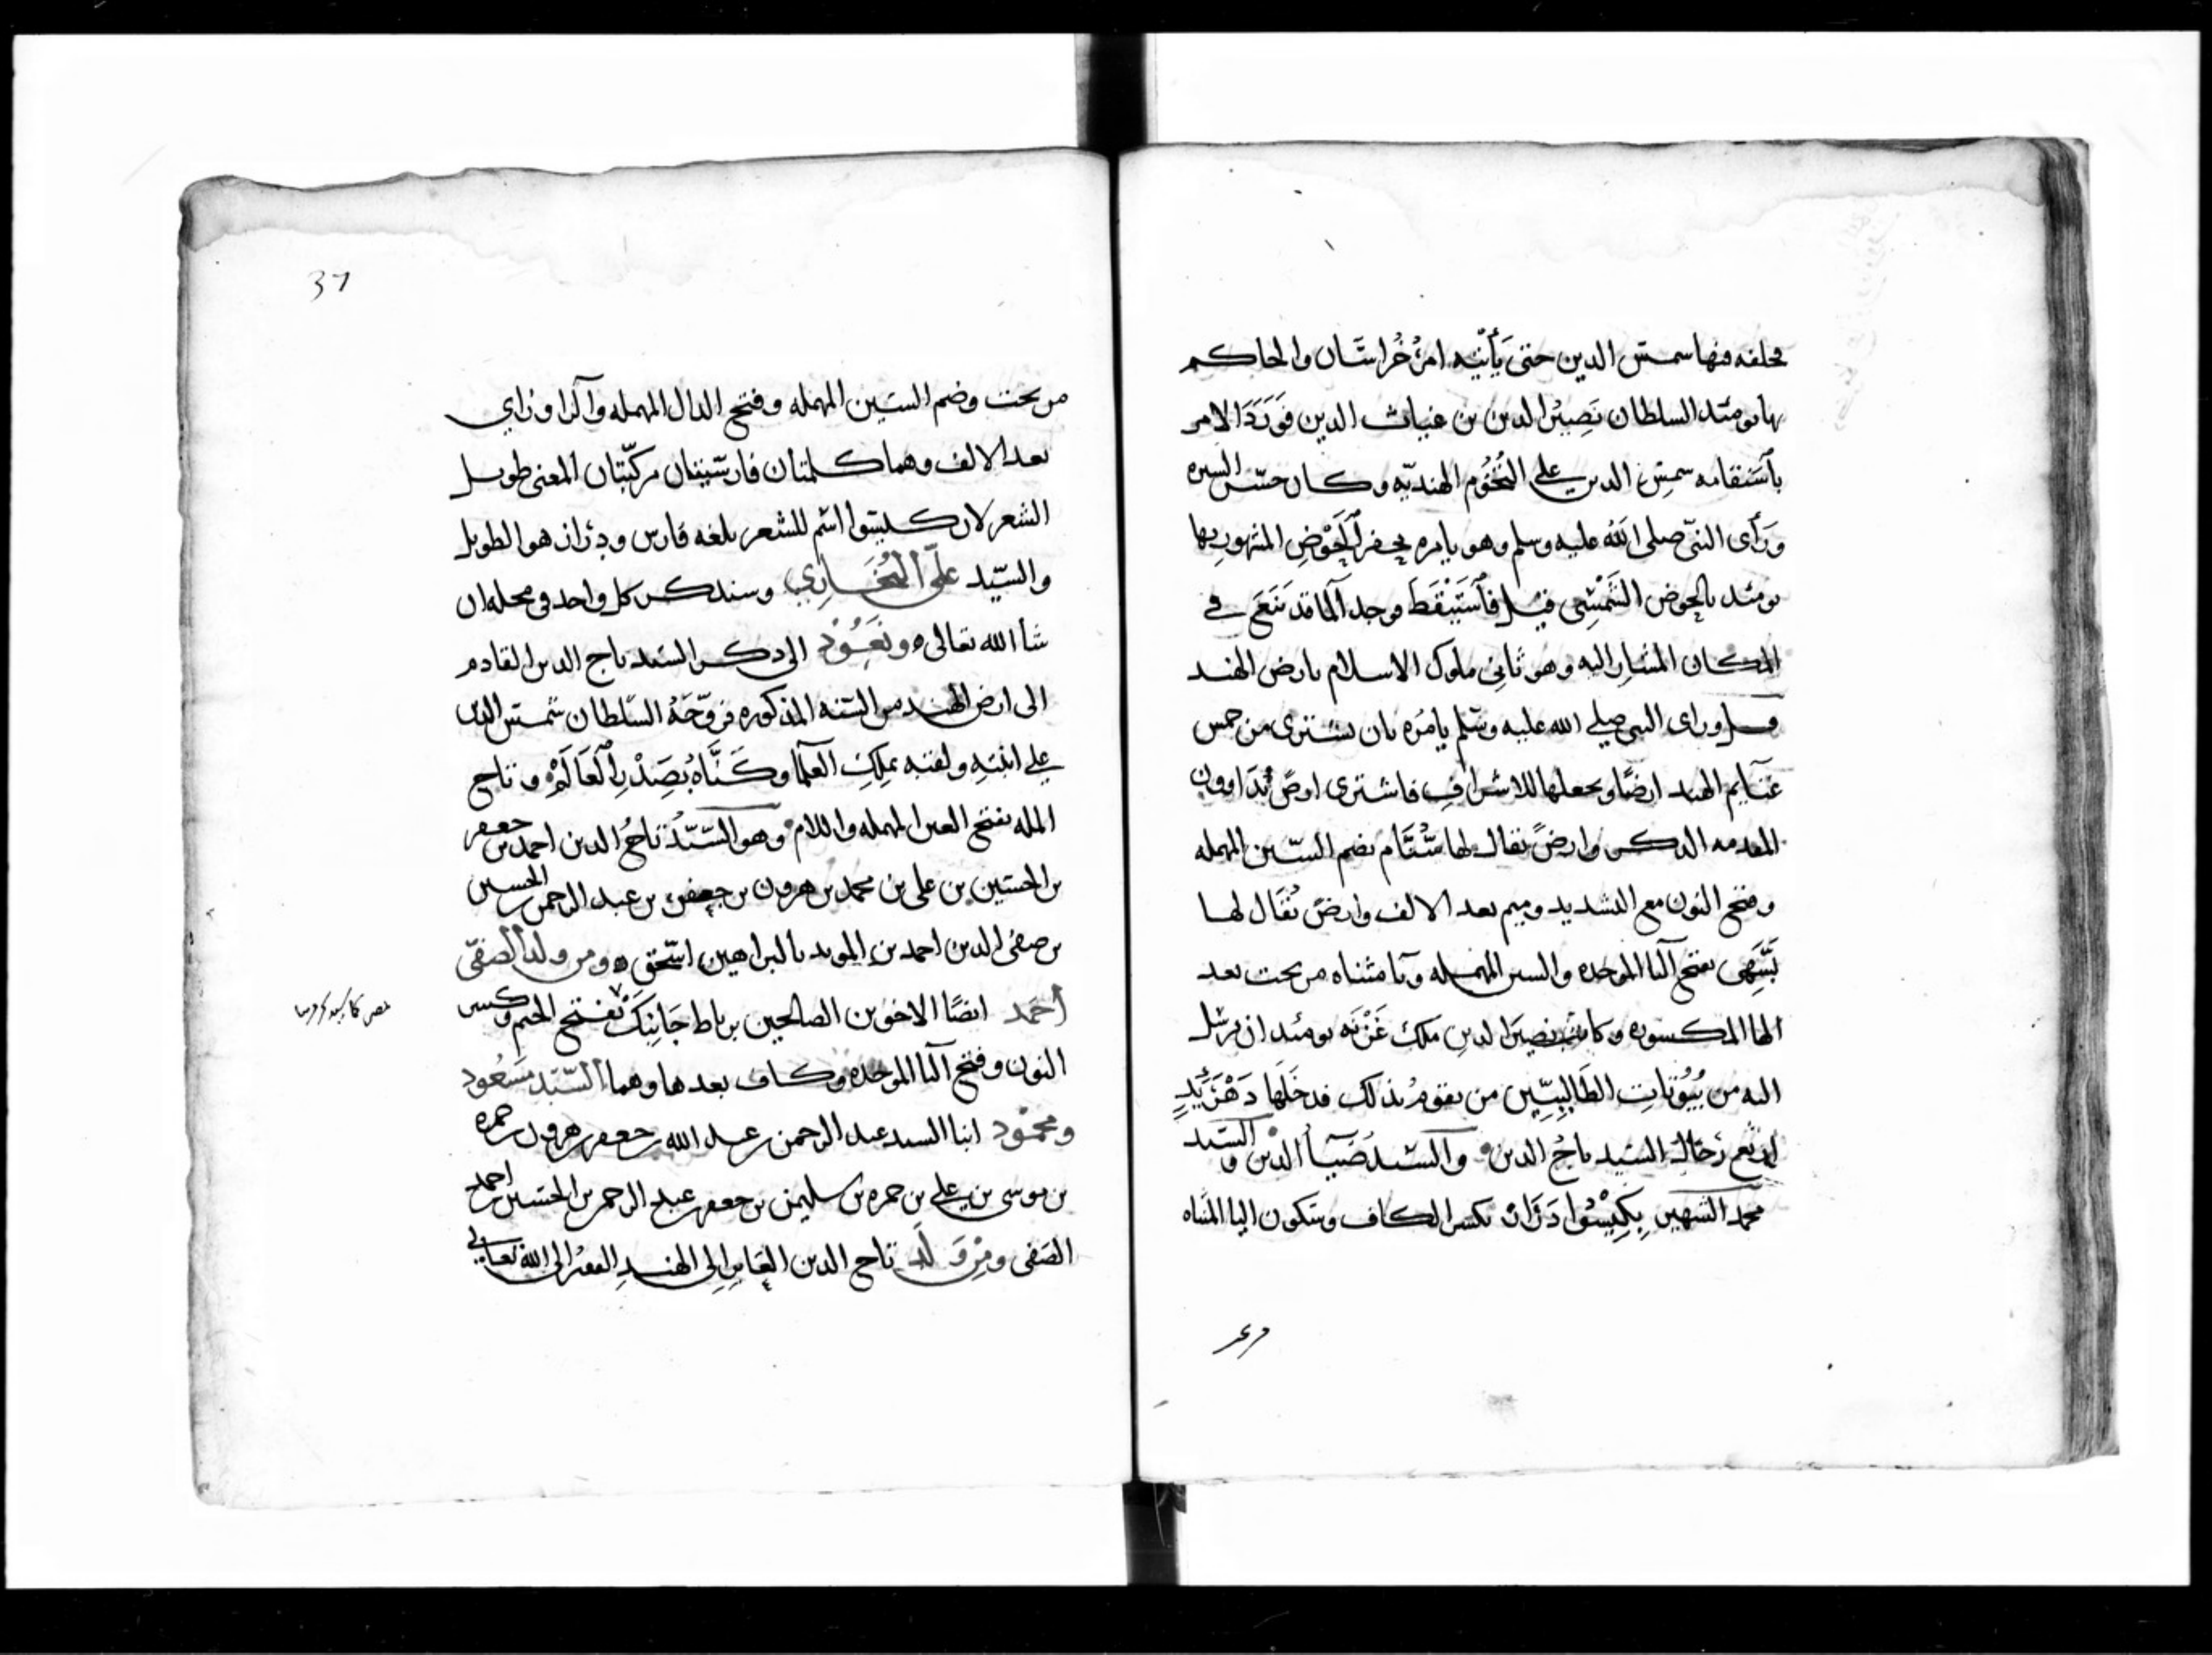 فخلفه فيها سمس الدين حتى يأتيه امرُ خُراسَان والحاكم
بها يومئد السلطان نَصِيرُ الدين بن غياث الدين فَوَرَدَ الامر
بآستقامه سمس الدين على التُخُوم الهنديّه وكان حسَن السيره
وَرَأى النبّى صلى اللهُ عليه وسلم وهو يامره بحفر الحَوْضِ المشهور بها
يومئد بالحوض الشَمْسِى قيل فآستَيْقَظَ فوجد آلما قد نَبَعَ في
المكان المشار اليه وهو ثانى ملوك الاسلام بارض الهند
قيل وراى النبى صلى الله عليه وسَلم يامُره بان يشترى من خمس
غنآيم الهند ارضًا ويجعلها للاشراف فاشترى ارضَ بَدَاوون
المقدمه الدكر وارضً يقال لها سُنَّام بضم السّين المهمله
وفتح النون مع التشديد وميم بعد الالف وارضً يُقَال لها
بفتح آلبا الموحده والسين المهمله ويا مثناه من تحت بعد
الها المكسوره وكاتب نصير الدين ملك غَزْنَه يومئد ان يرسل
اليه من بُيُوتاتِ الطَالِبِيّين من يقومُ بذلك فدخَلَهَا
اربَع رجَال السّيد تاجُ الدين والسّيد ضيآ الدين والسّيد
محمد الشهير بِكِيْسُوا دَرَاز بكسر الكاف وسكون اليا المثناه
من تحت وضم السّين المهمله وفتح الدال المهمله وآلرا وزاي
بعد الالف وهما كلمتان فارسّيتان مركبّتان المعنى طويل
الشعر لان كيسوا اسم للشعر بلغه فارس ودراز هو الطويل
والسّيد علّى البُخَاري وسندكر كل واحد في محله ان
شا الله تعالى ونَعُود الى دكر السّيد تاج الدين القادم
الى ارض الهند من السّنه المذكوره فزوّجَهُ السّلطان شمس الدين
على ابنتِه ولقبه بمِلكِ العلما وكَنَّاهُ بُصَدْرِ آلعَالَمْ وتاج
المله بفتح العين المهمله واللام وهو السّيّد تاجُ الدين احمد بن جعفر
بن الحسَين بن على بن محمد بن هرون بن جعفر بن عبد الرحمن بن الحسين
بن صفى الدين احمد بن المويد بالبراهين اسّحق ومن ولد الصَفّى
أحمد ايضًا الاخوين الصالحين برباط جَانِبَك بفتح الجيم وكسر
النون وفتح آلبا الموحده وكاف بعدها وهما السّيّد مسَعُود
ومحمُود ابنا السيد عبد الرحمن بن عبد الله بن جعفر بن هرون بن حمزه
بن موسى بن على بن حمزه بن سليمن بن جعفر بن عبد الرحمن بن الحسَين بن احمد
الصَفى ومِن وَلَدِ تاج الدين العَابرِ الى الهندِ الفقيرُ الى الله تعالى
37